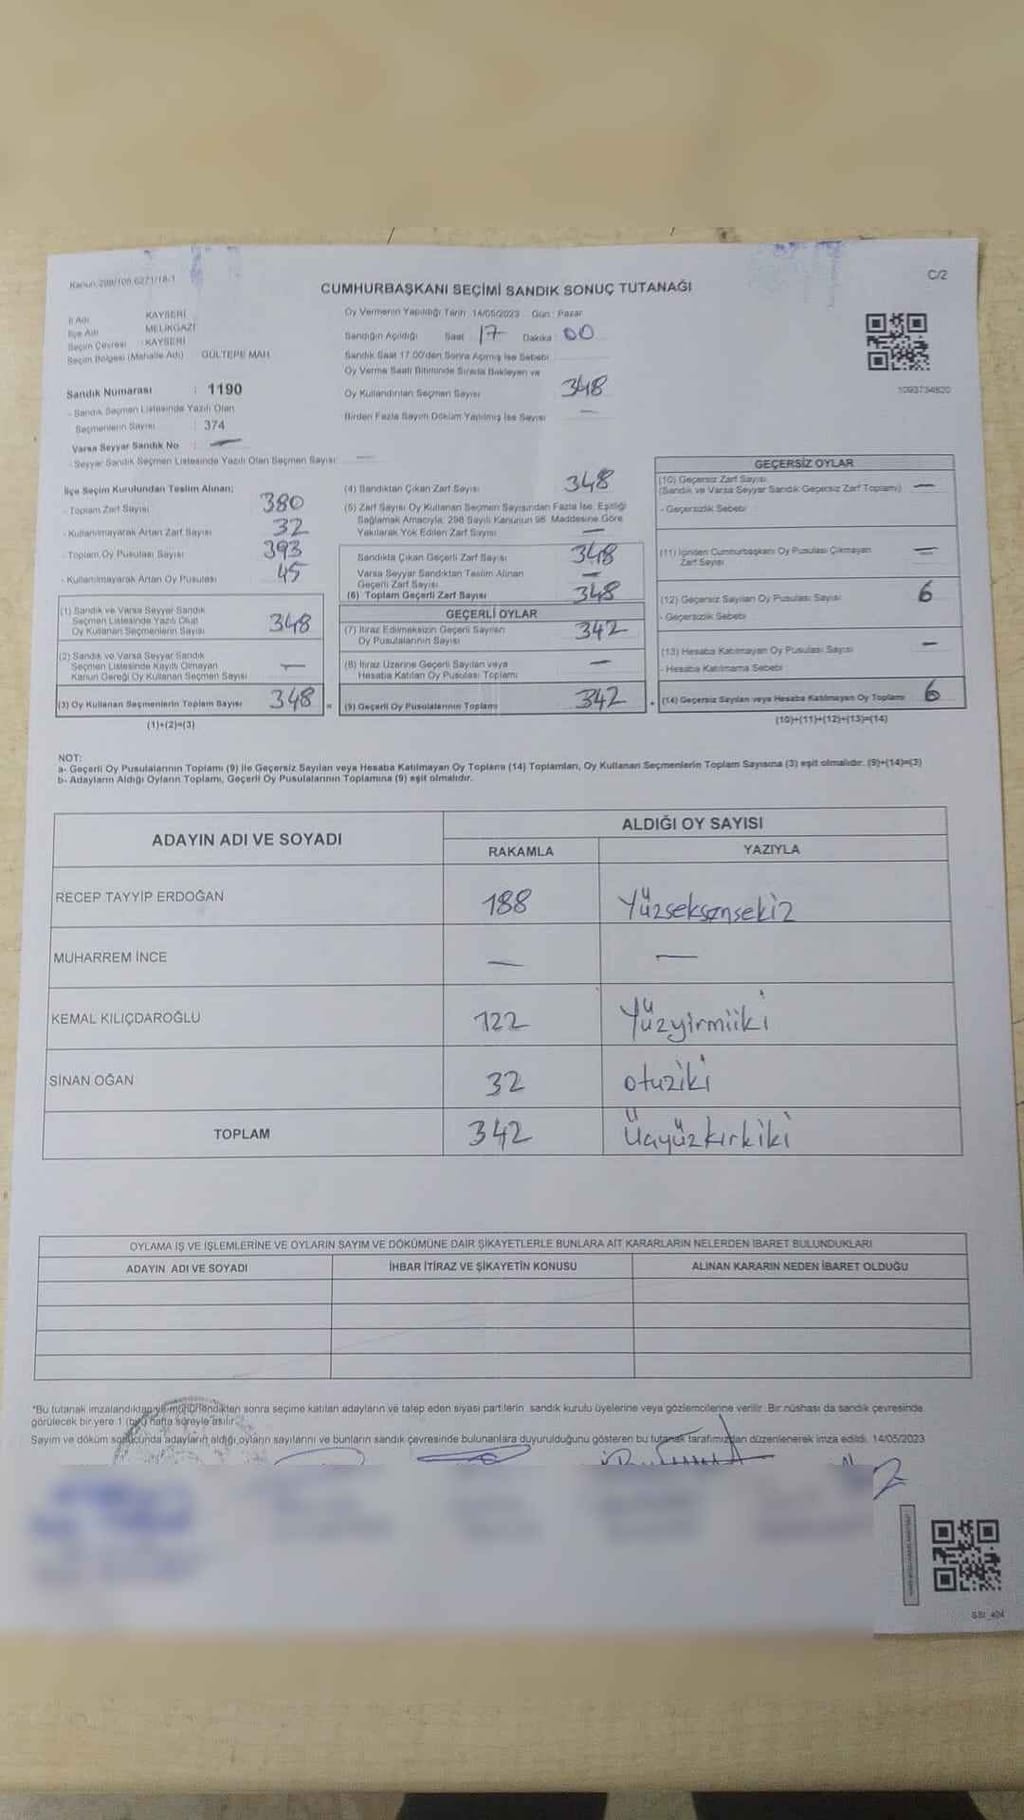 Kanun: 298/105 6271/18-1
C/2
CUMHURBAŞKANI SEÇİMİ SANDIK SONUÇ TUTANAĞI
İl Adı KAYSERİ
İlçe Adı MELİKGAZİ
Seçim Çevresi : KAYSERİ
Seçim Bölgesi (Mahalle Adı) GÜLTEPE MAH
Sandık Numarası : 1190
- Sandık Seçmen Listesinde Yazılı Olan
Seçmenlerin Sayısı : 374
Varsa Seyyar Sandık No : —
- Seyyar Sandık Seçmen Listesinde Yazılı Olan Seçmen Sayısı: —
Oy Vermenin Yapıldığı Tarih 14/05/2023 Gün : Pazar
Sandığın Açıldığı Saat 17 Dakika 00
Sandık Saat 17.00'den Sonra Açmış İse Sebebi
Oy Verme Saati Bitiminde Sırada Bekleyen ve
Oy Kullandırılan Seçmen Sayısı 348
Birden Fazla Sayım Döküm Yapılmış İse Sayısı —
1093734820
İlçe Seçim Kurulundan Teslim Alınan;
- Toplam Zarf Sayısı 380
- Kullanılmayarak Artan Zarf Sayısı 32
- Toplam Oy Pusulası Sayısı 393
- Kullanılmayarak Artan Oy Pusulası 45
(1) Sandık ve Varsa Seyyar Sandık
Seçmen Listesinde Yazılı Olup
Oy Kullanan Seçmenlerin Sayısı 348
(2) Sandık ve Varsa Seyyar Sandık
Seçmen Listesinde Kayıtlı Olmayan
Kanun Gereği Oy Kullanan Seçmen Sayısı —
(3) Oy Kullanan Seçmenlerin Toplam Sayısı 348 =
(1)+(2)=(3)
(4) Sandıktan Çıkan Zarf Sayısı 348
(5) Zarf Sayısı Oy Kullanan Seçmen Sayısından Fazla İse, Eşitliği
Sağlamak Amacıyla; 298 Sayılı Kanunun 98. Maddesine Göre
Yakılarak Yok Edilen Zarf Sayısı —
Sandıkta Çıkan Geçerli Zarf Sayısı 348
Varsa Seyyar Sandıktan Teslim Alınan
Geçerli Zarf Sayısı —
(6) Toplam Geçerli Zarf Sayısı 348
GEÇERLİ OYLAR
(7) İtiraz Edilmeksizin Geçerli Sayılan
Oy Pusulalarının Sayısı 342
(8) İtiraz Üzerine Geçerli Sayılan veya
Hesaba Katılan Oy Pusulası Toplamı —
(9) Geçerli Oy Pusulalarının Toplamı 342
GEÇERSİZ OYLAR
(10) Geçersiz Zarf Sayısı
(Sandık ve Varsa Seyyar Sandık Geçersiz Zarf Toplamı) —
- Geçersizlik Sebebi
(11) İçinden Cumhurbaşkanı Oy Pusulası Çıkmayan
Zarf Sayısı —
(12) Geçersiz Sayılan Oy Pusulası Sayısı 6
- Geçersizlik Sebebi
(13) Hesaba Katılmayan Oy Pusulası Sayısı —
- Hesaba Katılmama Sebebi
(14) Geçersiz Sayılan veya Hesaba Katılmayan Oy Toplamı 6
(10)+(11)+(12)+(13)=(14)
NOT:
a- Geçerli Oy Pusulalarının Toplamı (9) ile Geçersiz Sayılan veya Hesaba Katılmayan Oy Toplamı (14) Toplamları, Oy Kullanan Seçmenlerin Toplam Sayısına (3) eşit olmalıdır. (9)+(14)=(3)
b- Adayların Aldığı Oyların Toplamı, Geçerli Oy Pusulalarının Toplamına (9) eşit olmalıdır.
ADAYIN ADI VE SOYADI
ALDIĞI OY SAYISI
RAKAMLA YAZIYLA
RECEP TAYYİP ERDOĞAN 188 Yüzseksensekiz
MUHARREM İNCE — —
KEMAL KILIÇDAROĞLU 122 Yüzyirmiiki
SİNAN OĞAN 32 otuziki
TOPLAM 342 Üçyüzkırkiki
OYLAMA İŞ VE İŞLEMLERİNE VE OYLARIN SAYIM VE DÖKÜMÜNE DAİR ŞİKAYETLERLE BUNLARA AİT KARARLARIN NELERDEN İBARET BULUNDUKLARI
ADAYIN ADI VE SOYADI İHBAR İTİRAZ VE ŞİKAYETİN KONUSU ALINAN KARARIN NEDEN İBARET OLDUĞU
*Bu tutanak imzalandıktan ve mühürlendikten sonra seçime katılan adayların ve talep eden siyasi partilerin sandık kurulu üyelerine veya gözlemcilerine verilir. Bir nüshası da sandık çevresinde
görülecek bir yere 1 (bir) hafta süreyle asılır.
Sayım ve döküm sonucunda adayların aldığı oyların sayılarını ve bunların sandık çevresinde bulunanlara duyurulduğunu gösteren bu tutanak tarafımızdan düzenlenerek imza edildi. 14/05/2023